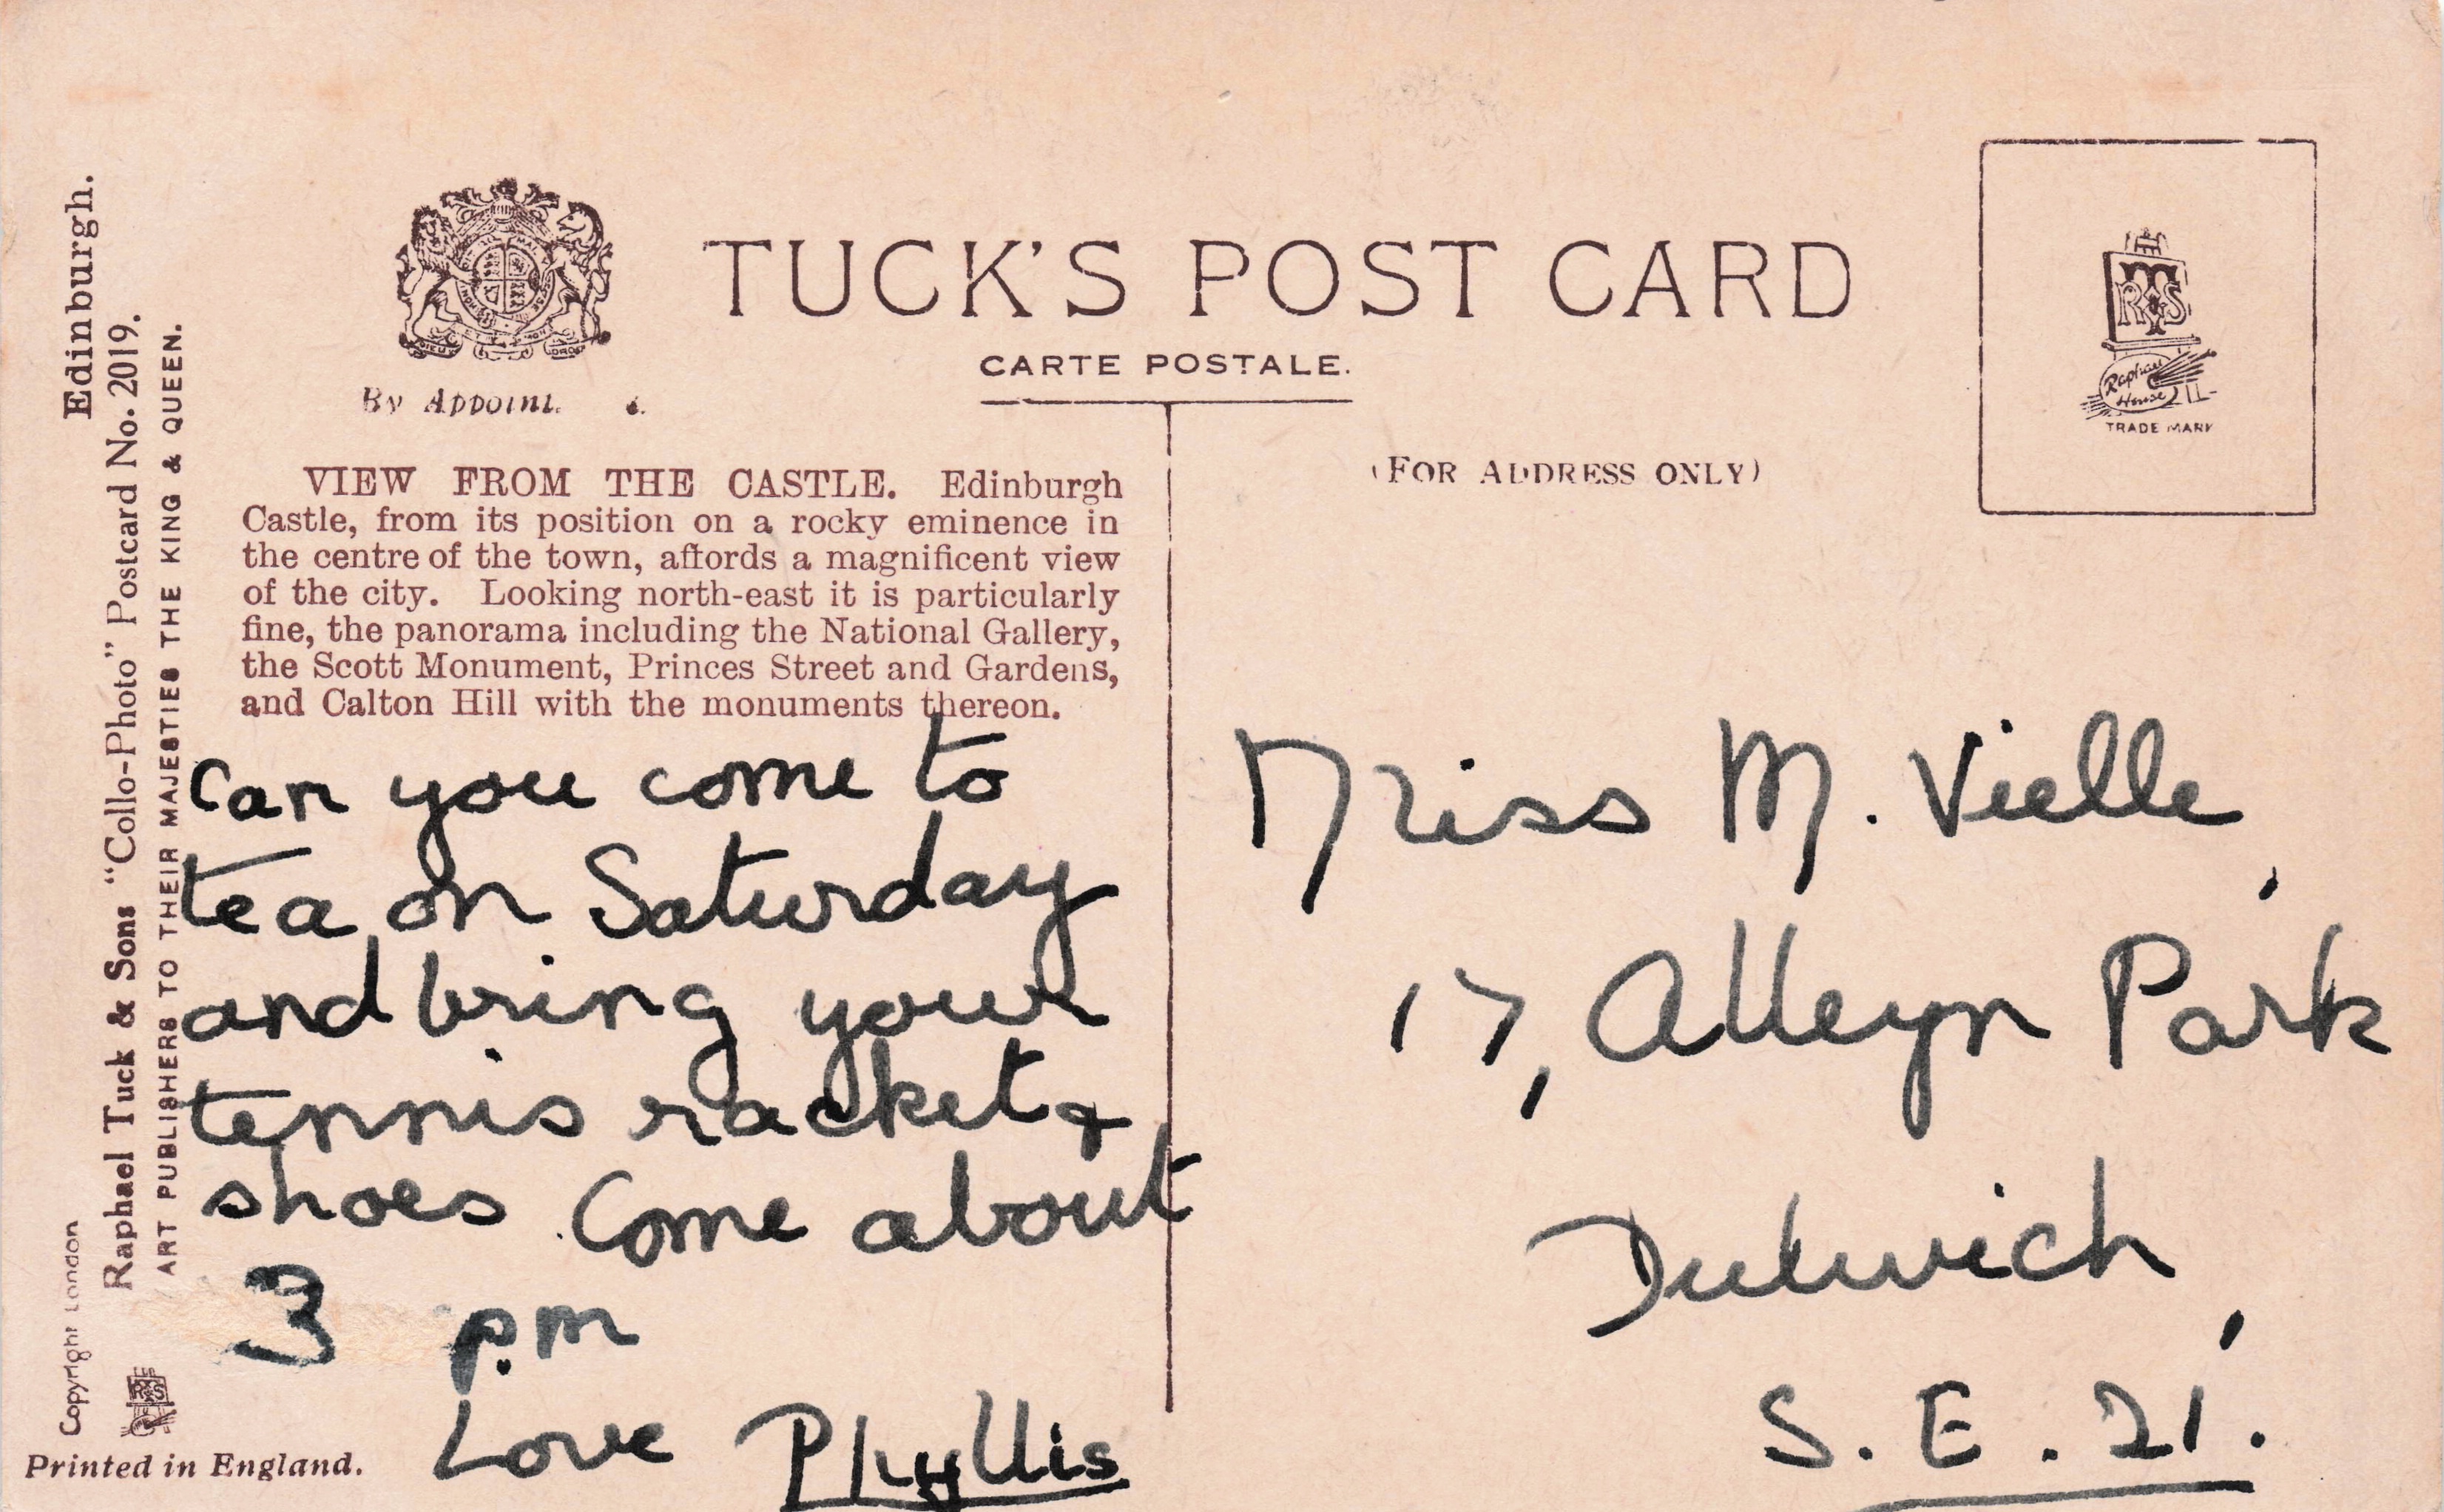 Edinburgh.
Raphael Tuck & Sons "Collo-Photo" Postcard No. 2019.
ART PUBLISHERS TO THEIR MAJESTIES THE KING & QUEEN.
Copyright London
Printed in England.
TUCK'S POST CARD
CARTE POSTALE.
By
(FOR ADDRESS ONLY)
RTS
Raphael
House
TRADE MARK
VIEW FROM THE CASTLE. Edinburgh
Castle, from its position on a rocky eminence in
the centre of the town, affords a magnificent view
of the city. Looking north-east it is particularly
fine, the panorama including the National Gallery,
the Scott Monument, Princes Street and Gardens,
and Calton Hill with the monuments thereon.
Can you come to
tea on Saturday
and bring your
tennis racket &
shoes. Come about
3 p.m
Love Phyllis
Miss M. Vielle,
17, Alleyn Park
Dulwich,
S. E. 21.